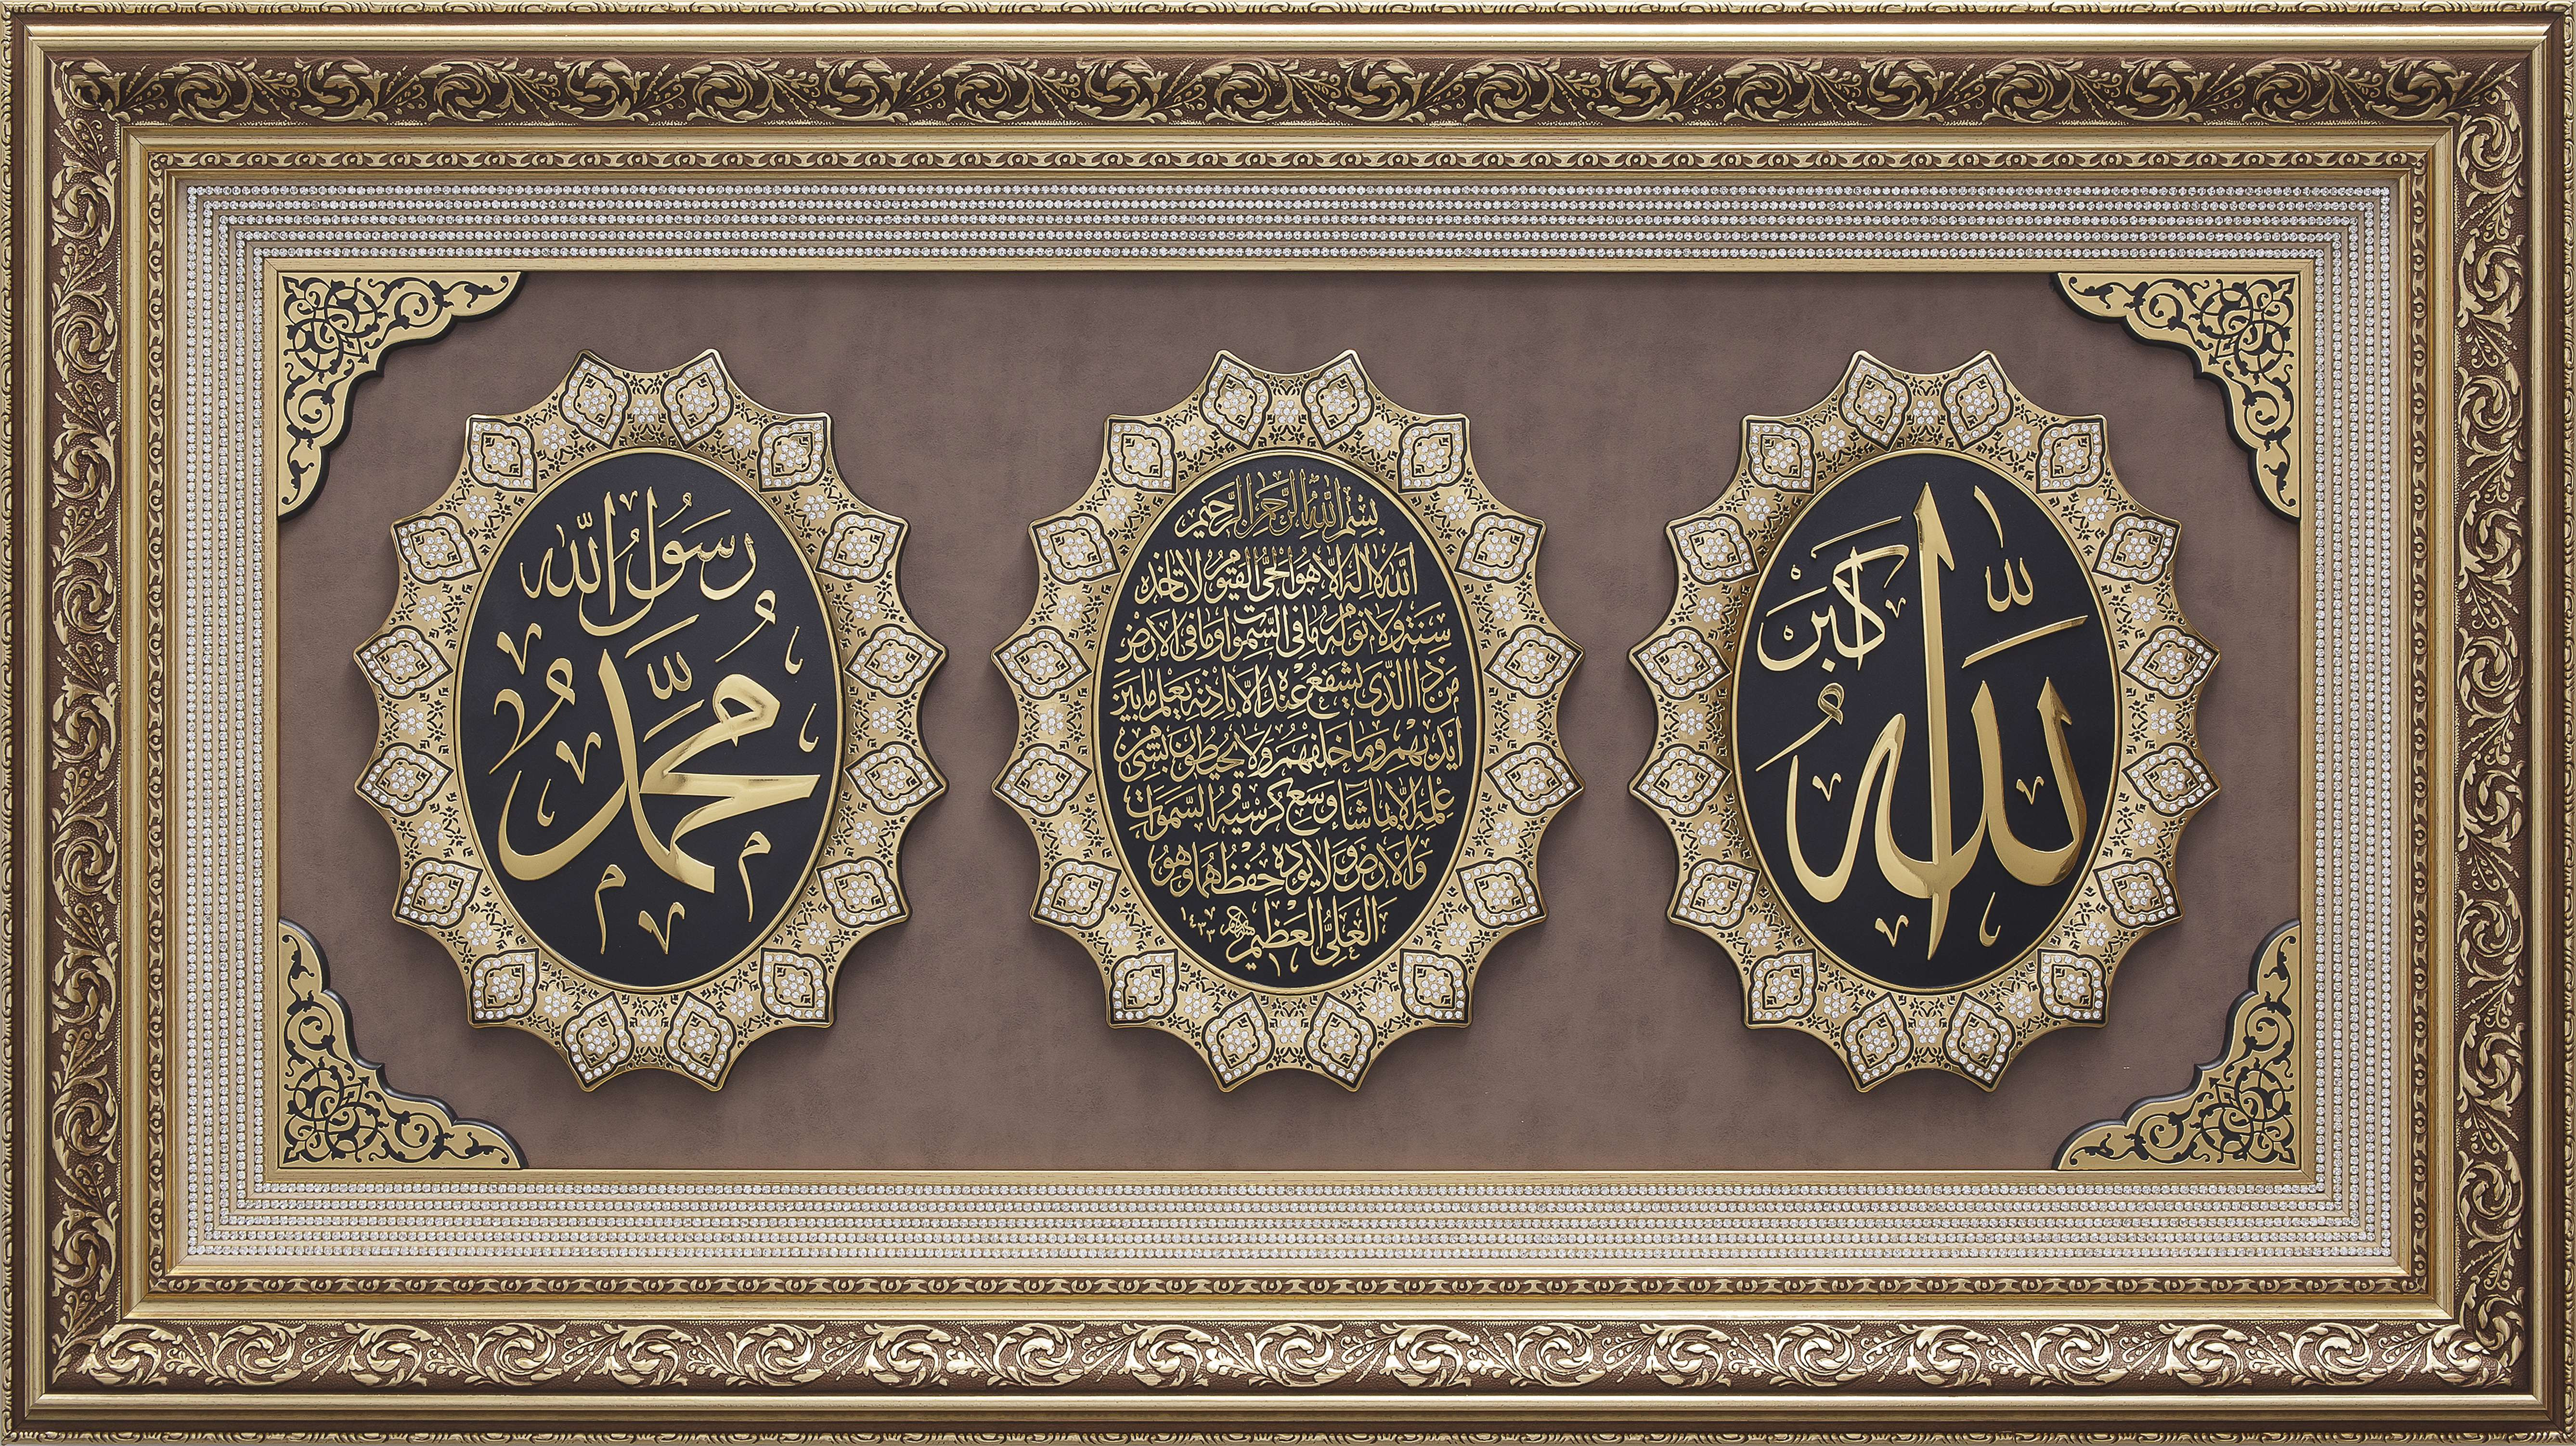 الله أكبر
بسم الله الرحمن الرحيم
الله لا إله إلا هو الحي القيوم لا تأخذه
سنة ولا نوم له ما في السموات وما في الأرض
من ذا الذي يشفع عنده إلا بإذنه يعلم ما بين
أيديهم وما خلفهم ولا يحيطون بشيء من
علمه إلا بما شاء وسع كرسيه السموات
والأرض ولا يؤده حفظهما وهو
العلي العظيم
رسول الله
محمد